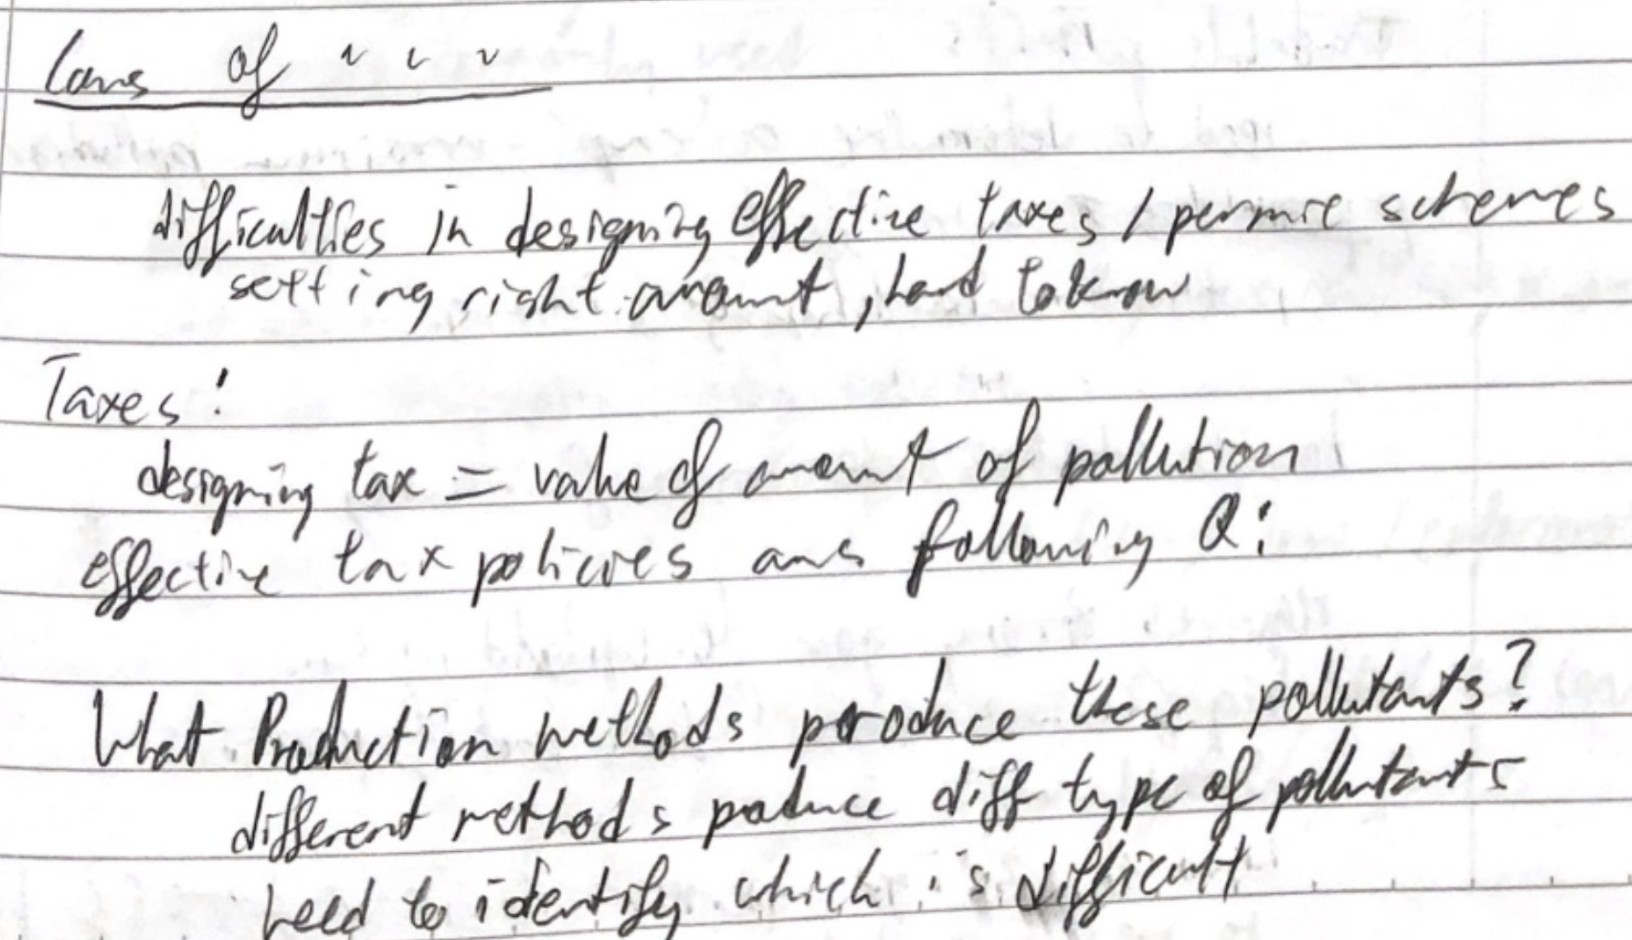 Cons of " " "
difficulties in designing effective taxes / permit schemes
setting right amount, hard to know
Taxes:
designing tax = value of amount of pollution
effective tax policies ans following Q:
What Production methods produce these pollutants?
different methods produce diff type of pollutants
need to identify which is difficult